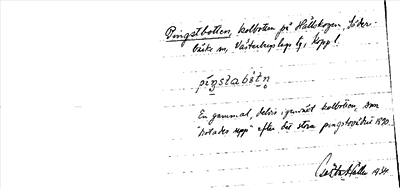 Pingstbotten, kolbotten på Hållskogen, Söder-
bärke sn, Västerbergslags tg, Kopp. l.
píŋstabòtn̥
En gammal, delvis igenväxt kolbotten, som
"kolades upp" efter det stora pingstovädret 1890.
1934